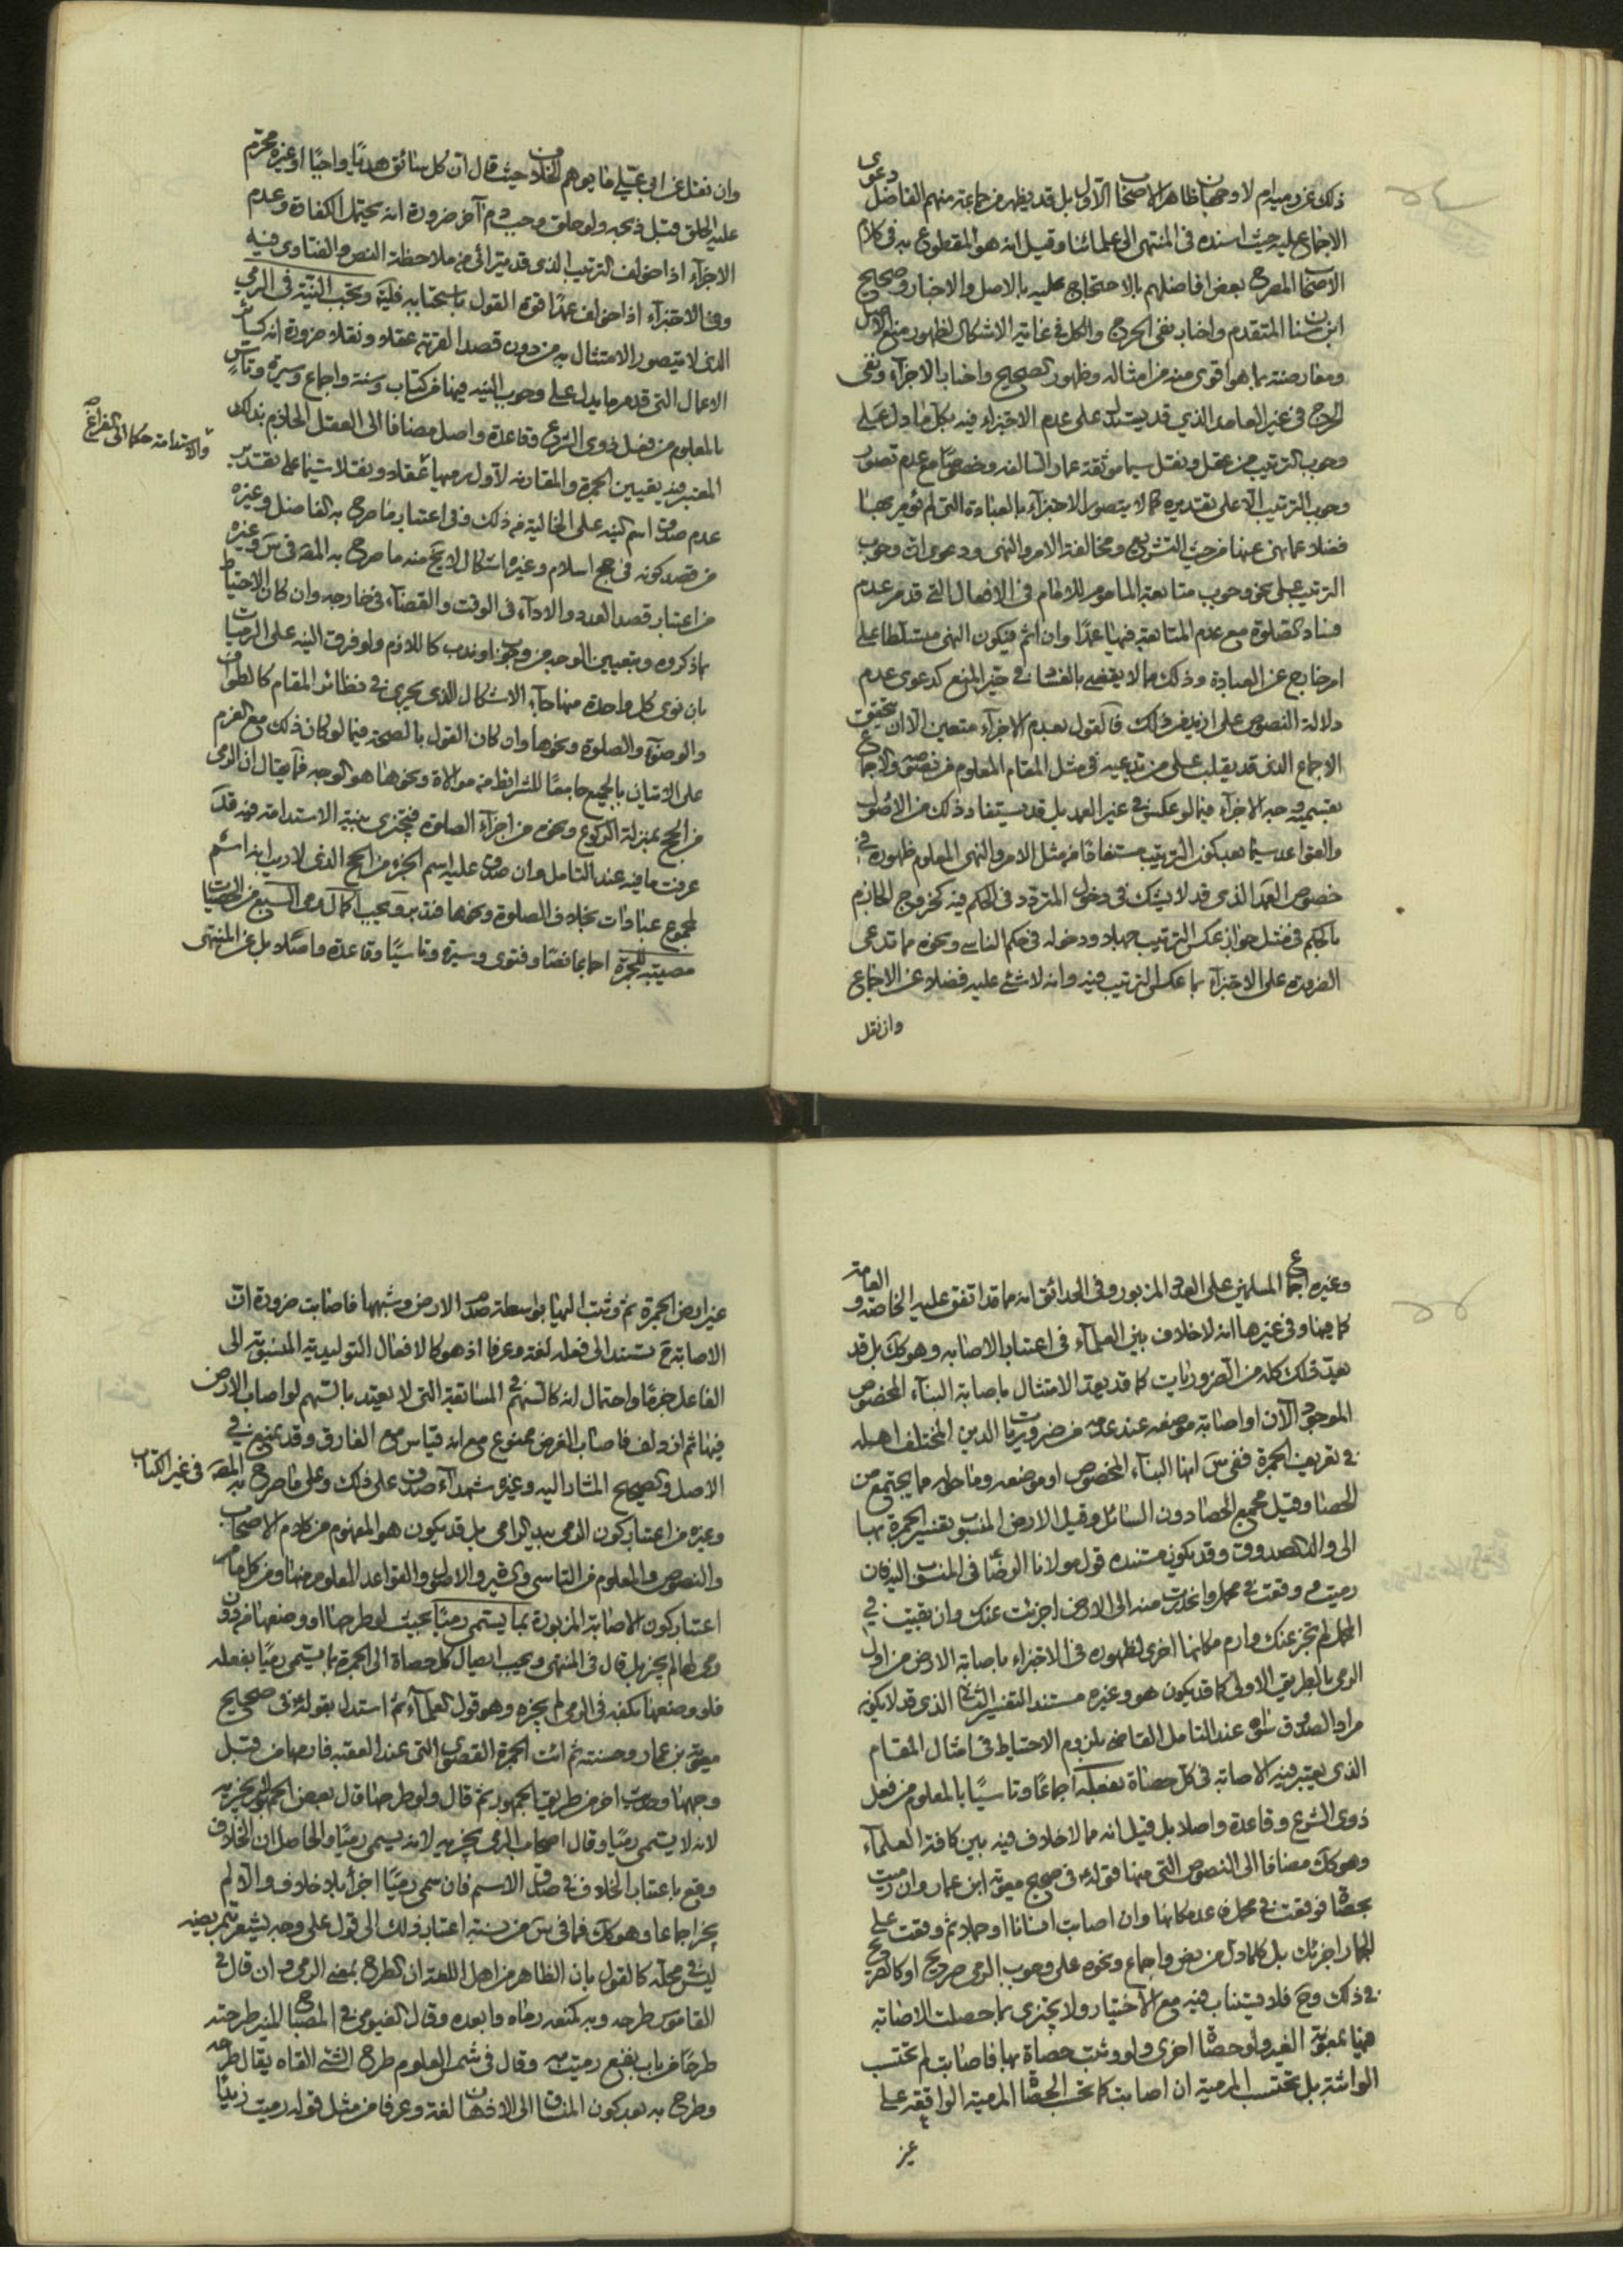 ذلك عن دم يلزم لا وجها ظاهرا لأصحابنا الأول بل قد يظهر من جماعة منهم الفاضل دعوى
الاجماع عليه حيث اسنده فى المنتهى الى علمائنا وقيل انه هو المقطوع به فى كلام
الاصحاب المصرح بعض افاضلهم بالاحتجاج عليه بالاصل والاخبار وصحيح
ابن سنان المتقدم واخبار نفى الحرج والكل فى غاية الاشكال لظهور منع الاصل
ومعارضته بما هو اقوى منه من امثاله وظهور الصحيح واخبار الاجزاء ونفى
الحرج فى غير العامد الذي قد يستدل على عدم الاجتزاء فيه بكل ما دل على
وجوب الترتيب من عقل ونقل سيما موثقة عمار السالفه وخصوصا مع عدم تصور
وجوب الترتيب الا على تقديره كما لا يتصور الاجتزاء بالعبادة التى لم يؤمر بها
فضلا عما نهى عنها من حيث التشريع ومخالفة الامر والنهى ودعوى ان وجوب
الترتيب على نحو وجوب متابعة الماموم للامام فى الافعال التى قد مر عدم
فساد الصلوة مع عدم المتابعة فيها عمدا وان اثم فيكون النهى متسلطا على
امر خارج عن العبادة وذلك مما لا يقضى بالفساد فى حيز المنع كدعوى عدم
دلالة النصوص على ازيد من ذلك فالقول بعدم الاجزاء متعين الا ان تحقيق
الاجماع الذى قد يقلب على من يدعيه فى مثل المقام المعلوم من نصوصه والاجماع
بقسميه وجه الاجزاء فيما لو عكس فى غير العمد بل قد يستفاد ذلك من الاصول
والقواعد سيما بعد كون الترتيب مستفادا من مثل الامر والنهى المعلوم ظهوره فى
خصوص العمد الذى قد لا يشك فى دخول المتردد فى الحكم فيه كخروج الجازم
بالحكم فى مثل جواز عكس الترتيب جهلا ودخوله فى حكم الناسى ونحوه مما تدعى
الضرورة على الاجتزاء بما عكس الترتيب فيه وانه لا شئ عليه فضلا عن الاجماع
وان نقل
وان نقل عن ابى عقيل ما يوهم الخلاف حيث قال ان كل سائق هديا واجبا او غيره محرم
عليه الحلق قبل ذبحه ولو حلق وجب دم آخر ضرورة انه يحتمل الكفارة وعدم
الاجزاء اذا خولف الترتيب الذى قد يترائى من ملاحظة النص والفتاوى فيه
وفى الاجتزاء اذا خولف عمدا قوة القول باستحبابه فليته وتجب النية فى الرمي
الذى لا يتصور الامتثال به من دون قصد القربة عقلا ونقلا ضرورة انه كسائر
الاعمال التى قد مر ما يدل على وجوب النيه فيها من كتاب وسنة واجماع وسيرة وتأس
بالمعلوم من فعل ذوى الشرع وقاعدة واصل مضافا الى العقل الحاكم بذلك
والاستدامة حكما الى الفراغ صح
المعتبر فيه تعيين الجمرة والمقارنه لاول رميها عقلا ونقلا سيما على تقدير
عدم صدق اسم النيه على الخالية من ذلك وفى اعتبار ما صرح به الفاضل وغيره
من قصد كونه فى حج اسلام وغيره اشكال لا يخ منه ما صرح به المص فى س وغيره
من اعتبار قصد العدد والاداء فى الوقت والقضاء فى خارجه وان كان الاحتياط
بما ذكروه وبتعيين الوجه من وجوب او ندب كاللازم ولو فرق النيه على الرميات
بان نوى كل واحدة منها جاء الاشكال الذى يجرى فى نظائر المقام كالطواف
والوضوء والصلوة ونحوها وان كان القول بالصحة فيما لو كان ذلك مع العزم
على الاتيان بالجميع جامعا للشرائط من موالاة ونحوها هو الوجه فما يقال ان الرمى
من الحج بمنزلة الركوع ونحوه من اجزاء الصلوة فيجتزى بنية الاستدامة فيه قد
عرفت ما فيه عند التامل وان صدق عليه اسم الجزء من الحج الذى لا ريب انه اسم
لمجموع عبادات بخلاف الصلوة ونحوها فتدبر ويجب اكمال رمى السبع من الحصيات
مصيبة للجمرة اجماعا نصا وفتوى وسيرة وتاسيا وقاعدة واصلا بل عن المنتهى
وغيره اجماع المسلمين على العدد المزبور وفى الحدائق انه مما قد اتفق عليه الخاصه والعامة
كما فيها وفى غيرها انه لا خلاف بين العلماء فى اعتبار الاصابه وهو كك بل قد
يعد ذلك كله من الضروريات كما قد يعد الامتثال باصابة البناء المخصوص
الموجود الآن او اصابة موضعه عند عدمه من ضروريات الدين المختلف اهله
فى تعريف الجمرة ففى س انها البناء المخصوص او موضعه وما حوله مما يجتمع من
الحصا وقيل مجمع الحصا دون السائل وقيل الارض المنسوب تفسير الجمرة بها
الى والد الصدوق وقد يكون مستنده قول مولانا الرضا فى المنسوب اليه فان
رميت ووقعت فى محمل وانحدرت منه الى الارض اجزئت عنك وان بقيت فى
المحمل لم تجز عنك وارم مكانها اخرى لظهوره فى الاجتزاء باصابة الارض من اول
الرمى بالطريق الاولى كما قد يكون هو وغيره مستند التفسير الثانى الذى قد لا يكون
مراد الصدوق سواه عند التامل القاضى بلزوم الاحتياط فى امثال المقام
الذى يعتبر فيه الاصابة فى كل حصاة بفعله اجماعا وتاسيا بالمعلوم من فعل
ذوى الشرع وقاعدة واصلا بل قيل انه مما لا خلاف فيه بين كافة العلماء
وهو كك مضافا الى النصوص التى منها قوله فى صحيح معوية ابن عمار وان رميت
بحصاة فوقعت فى محمل فاعد مكانها وان اصابت انسانا او جملا ثم وقعت على
الجمار اجزئك بل كلما دل من نص واجماع ونحوه على وجوب الرمى صريح او كالصريح
فى ذلك وح فلا يستناب فيه مع الاختيار ولا يجتزى بما حصلت الاصابة
فيها بمعونة الغير ولو حصاة اخرى ولو وثبت حصاة بها فاصابت لم تحتسب
الواثبة بل تحتسب المرمية ان اصابت كما تحتسب الحصاة المرمية الواقعة على
غير
غير ارض الجمرة ثم وثبت اليها بواسطة صدم الارض وشبهها فاصابت ضرورة ان
الاصابة ح تستند الى فعله لغة وعرفا اذ هو كالافعال التوليدية المنسوبة الى
الفاعل جزما واحتمال انه كالسهم فى المسابقة التى لا يعتد بالسهم لو اصاب الارض
فيها ثم ازدلف فاصاب الغرض ممنوع مع انه قياس مع الفارق وقد يمنع فى
الاصل والصحيح المشار اليه وغيره شهداء صدق على ذلك وعلى ما صرح به المص فى غير الكتاب
وغيره من اعتبار كون الرمى بيد الرامى بل قد يكون هو المفهوم من كلام الاصحاب
والنصوص والمعلوم من التاسى والسيرة والاصل والقواعد المعلوم منها ومن كل ما مر
اعتبار كون الاصابة المزبورة بما يسمى رميا بحيث لو طرحها او وضعها من دون
رمى لها لم يجز بل قال فى المنتهى ويجب ايصال كل حصاة الى الجمرة بما يسمى رميا بفعله
فلو وضعها بكفه فى الرمى لم يجزه وهو قول العلماء ثم استدل بقوله فى صحيح
معوية بن عمار وحسنته ثم ائت الجمرة القصوى التى عند العقبه فارمها من قبل
وجهها وحديث اخر من طريق الجمهور ثم قال ولو طرحها قال بعض الجمهور يجزيه
لانه لا يسمى رميا وقال اصحاب الرى يجزيه لانه يسمى رميا والحاصل ان الخلاف
وقع باعتبار الخلاف فى صدق الاسم فان سمى رميا اجزأ بلا خلاف والا لم
يجز اجماعا وهو كك فما فى س من نسبة اعتبار ذلك الى قول على وجه يشعر بتمريضه
ليس فى محله كالقول بان الظاهر من اهل اللغة ان الطرح بمعنى الرمى وان قال فى
القاموس طرحه وبه كمنعه رماه وابعده وقال الفيومى فى المصباح المنير طرحته
طرحا من باب نفع رميت به وقال فى شمس العلوم طرح الشئ القاه يقال طرحه
وطرح به بعد كون المنساق الى الاذهان لغة وعرفا من مثل قوله رميت زيدا